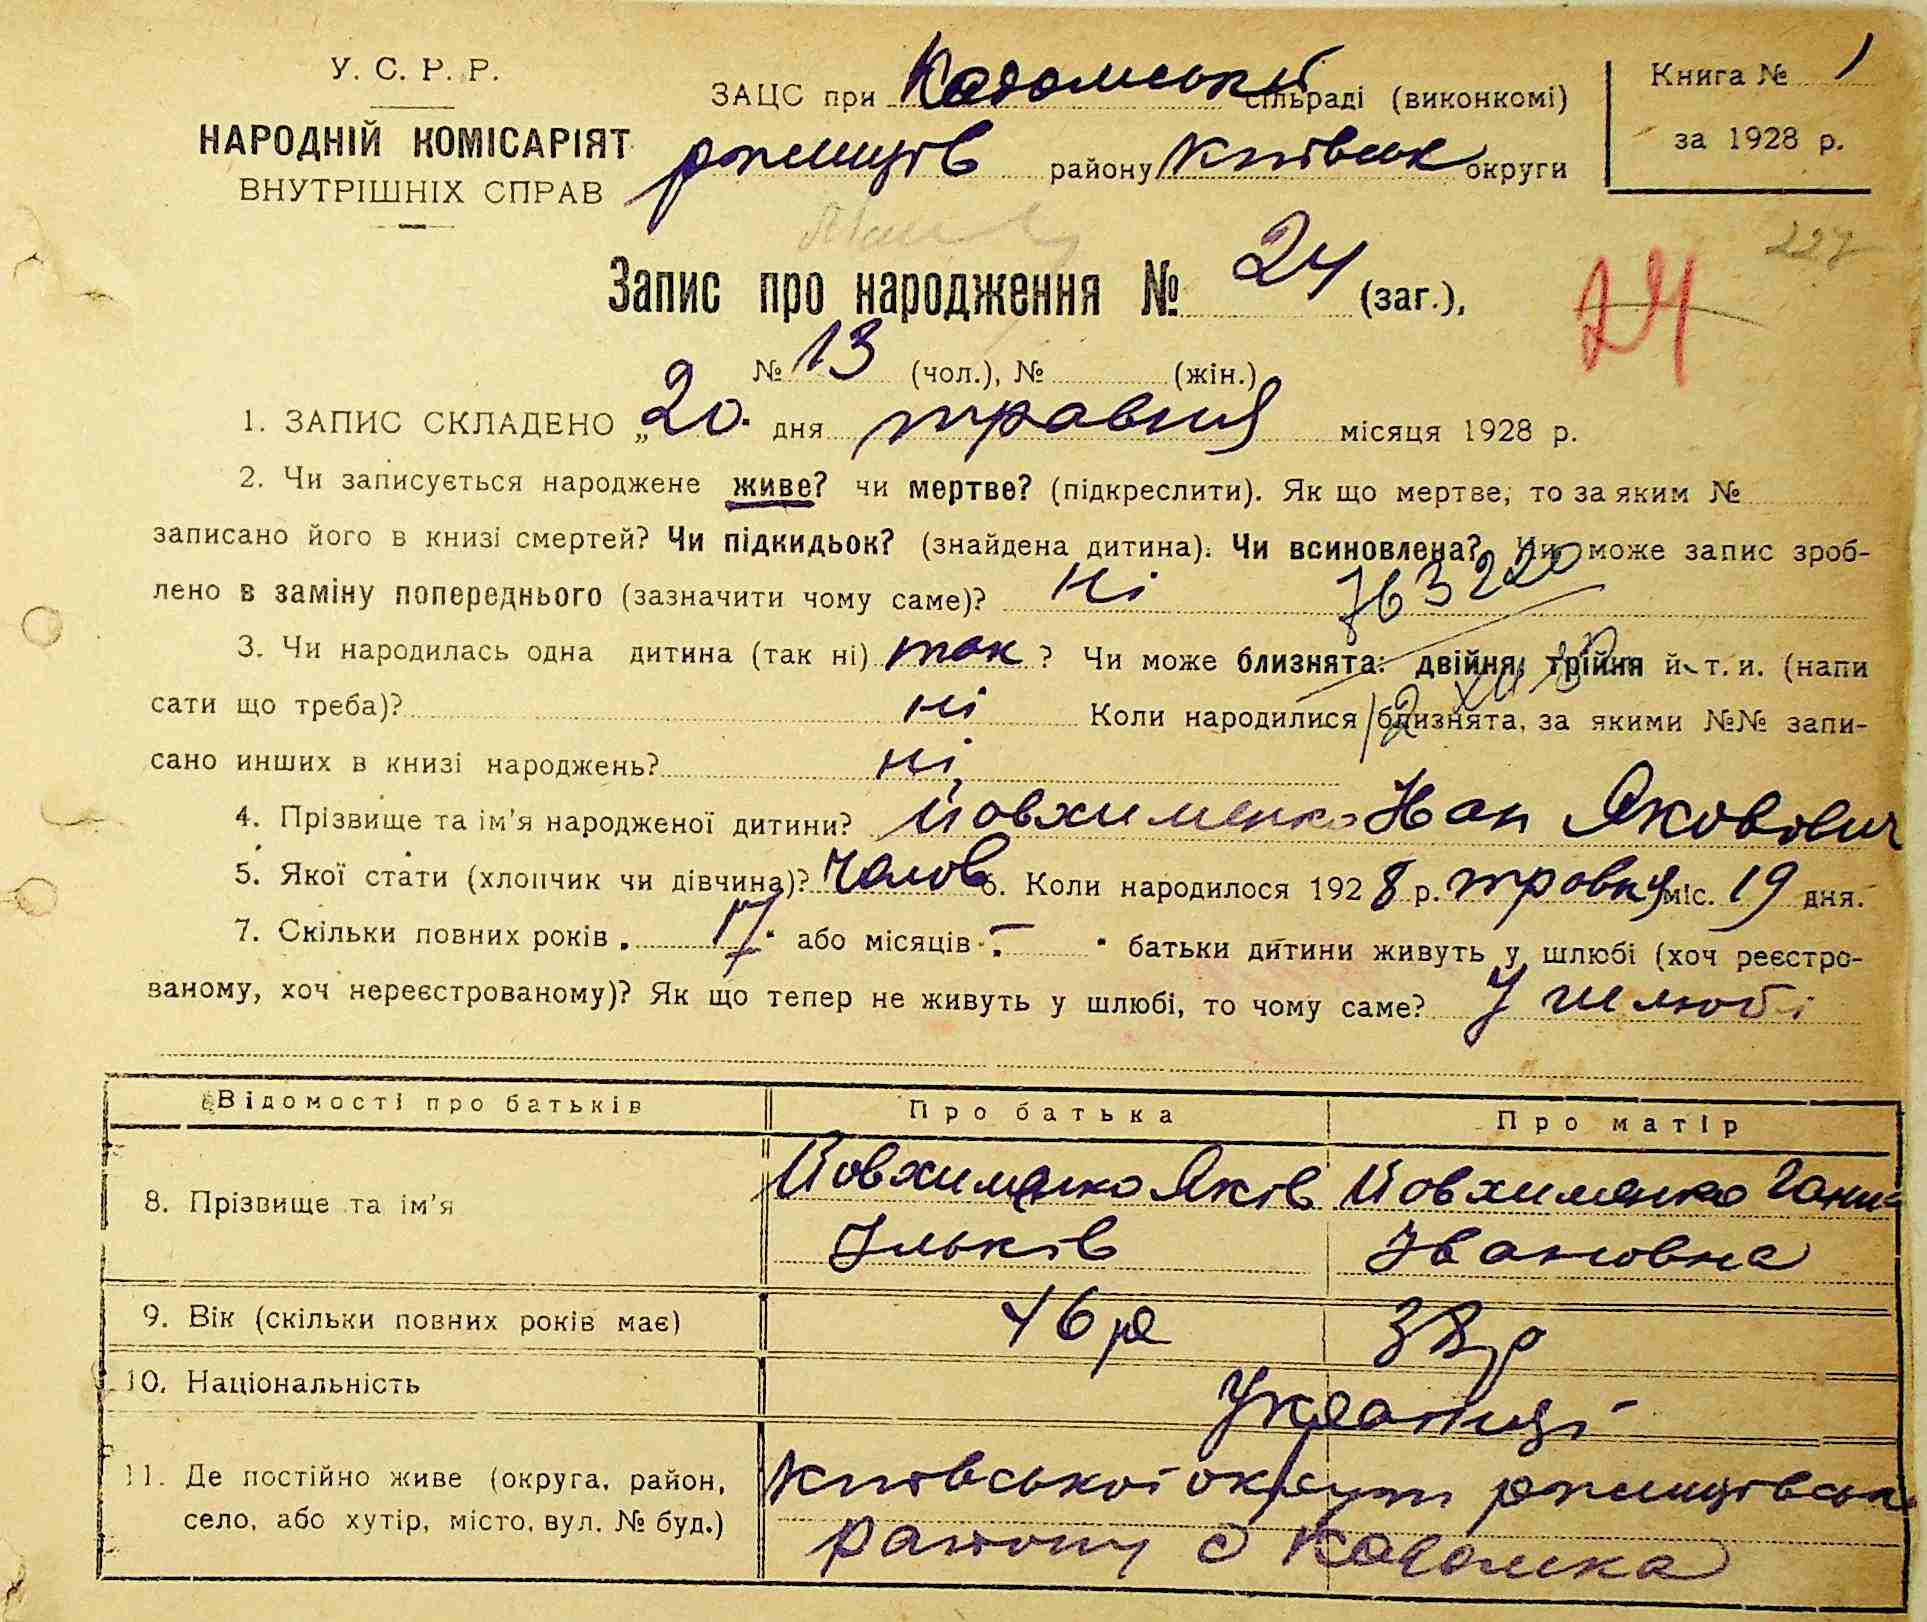 У. С. Р. Р.
НАРОДНІЙ КОМІСАРІЯТ
ВНУТРІШНІХ СПРАВ
ЗАЦС при сільраді (виконкомі)
району Київськ округи
Книга № 1
за 1928 р.
227
Запис про народження № 24 (заг.),
24
№ 13 (чол.), № (жін.)
1. ЗАПИС СКЛАДЕНО „20. дня травня місяця 1928 р.
2. Чи записується народжене живе? чи мертве? (підкреслити). Як що мертве, то за яким №
записано його в книзі смертей? Чи підкидьок? (знайдена дитина). Чи всиновлена? Чи може запис зроб-
лено в заміну попереднього (зазначити чому саме)? Ні
3. Чи народилась одна дитина (так ні) так ? Чи може близнята: двійня, трійня й т. и. (напи
сати що треба)? ні Коли народилися близнята, за якими №№ запи-
сано инших в книзі народжень? ні
4. Прізвище та ім'я народженої дитини? Йовхименко Іван Якович
5. Якої стати (хлопчик чи дівчина)? чолов 6. Коли народилося 1928 р. травня міс. 19 дня.
7. Скільки повних років 17 або місяців - батьки дитини живуть у шлюбі (хоч реєстро-
ваному, хоч нереєстрованому)? Як що тепер не живуть у шлюбі, то чому саме? У шлюбі
Відомості про батьків Про батька Про матір
8. Прізвище та ім'я Йовхименко Яків Йовхименко Ганна
Ільків Івановна
9. Вік (скільки повних років має) 46 р 38 р
10. Національність Українці
11. Де постійно живе (округа, район, Київської округи
село, або хутір, місто, вул. № буд.) району с